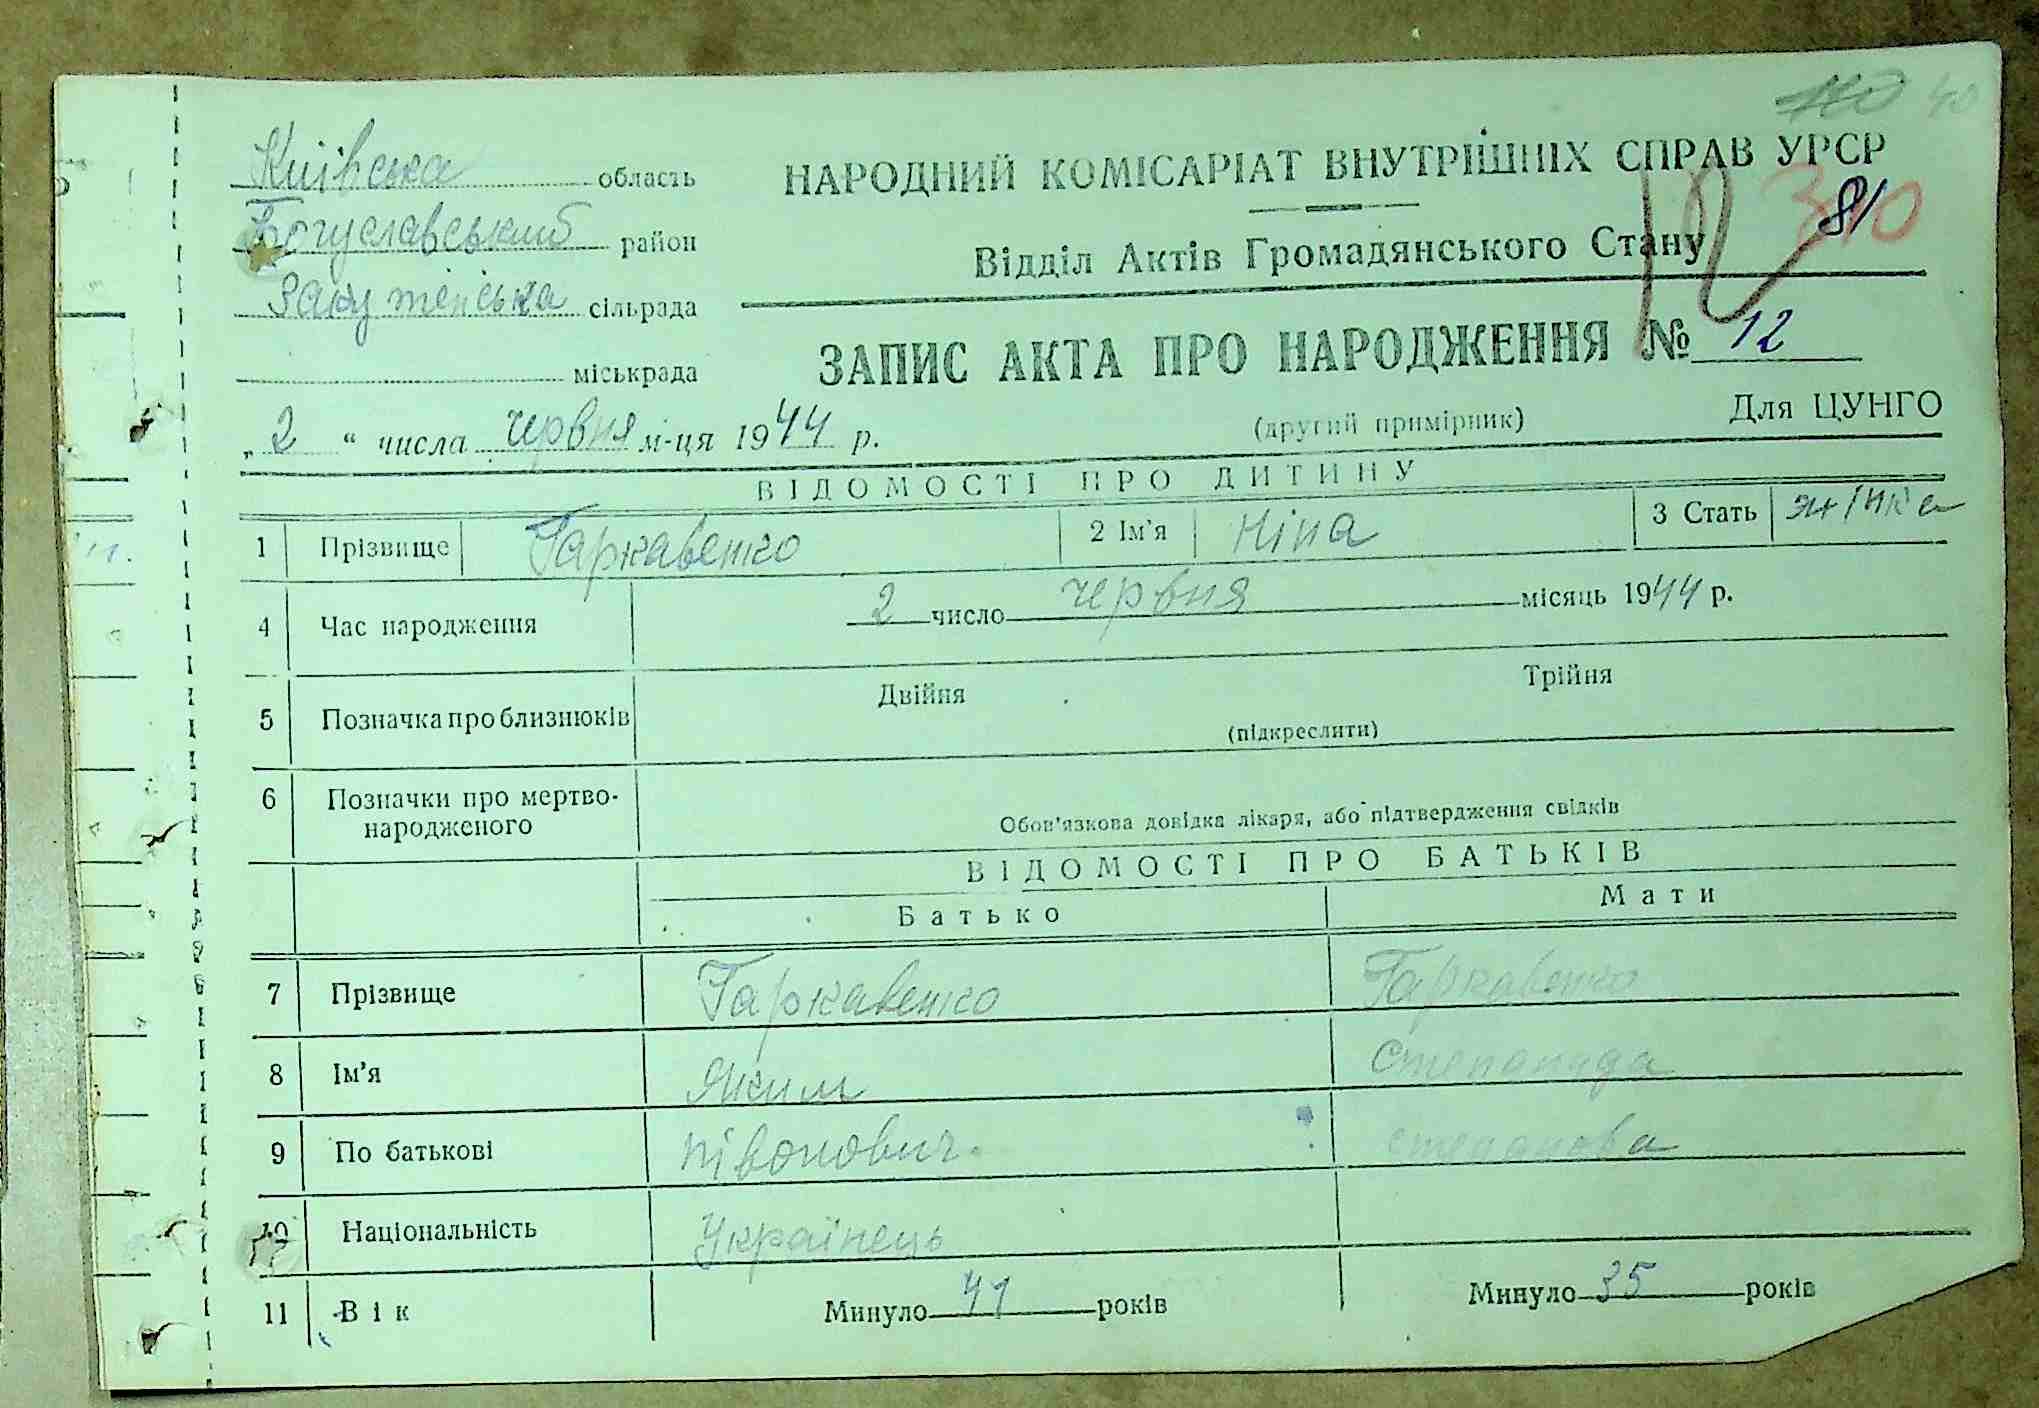 40
Київська область
НАРОДНИЙ КОМІСАРІАТ ВНУТРІШНІХ СПРАВ УРСР
Богуславський район
81
Відділ Актів Громадянського Стану
Закутенська сільрада
міськрада
ЗАПИС АКТА ПРО НАРОДЖЕННЯ № 12
(другий примірник)
Для ЦУНГО
„ 2 “ числа червня м-ця 1944 р.
ВІДОМОСТІ ПРО ДИТИНУ
1 Прізвище Гаркавенко 2 Ім'я Ніна 3 Стать
4 Час народження 2 число червня місяць 1944 р.
5 Позначка про близнюків Двійня Трійня
(підкреслити)
6 Позначки про мертво-
народженого
Обов'язкова довідка лікаря, або підтвердження свідків
ВІДОМОСТІ ПРО БАТЬКІВ
Батько Мати
7 Прізвище Гаркавенко Гаркавенко
8 Ім'я Яким Степанида
9 По батькові Півонович Степанова
10 Національність Українець
11 Вік Минуло 41 років Минуло 35 років